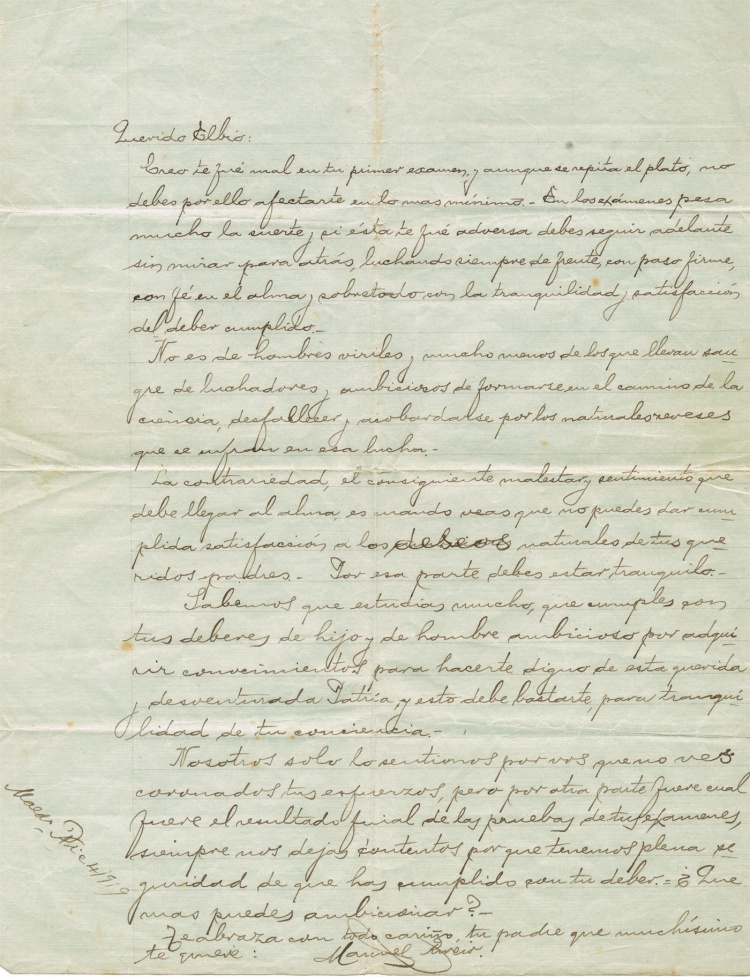 Querido Elbio:
Creo te fué mal en tu primer examen, y aunque se repita el plato, no
debes por ello afectarte en lo mas mínimo.- En los exámenes pesa
mucho la suerte y si ésta te fué adversa debes seguir adelante
sin mirar para atrás, luchando siempre de frente, con paso firme,
con fé en el alma y sobretodo, con la tranquilidad y satisfacción
del deber cumplido.-
No es de hombres viriles y mucho menos de los que llevan san-
gre de luchadores y ambiciosos de formarse en el camino de la
ciencia, desfallecer y acobardarse por los naturales reveses
que se sufran en esa lucha.-
La contrariedad, el consiguiente malestar y sentimiento que
debe llegar al alma, es cuando veas que no puedes dar cum-
plida satisfacción a los deseos naturales de tus que-
ridos padres.- Por esa parte debes estar tranquilo.-
Sabemos que estudias mucho, que cumples con
tus deberes de hijo y de hombre ambicioso por adqui-
rir conocimientos para hacerte digno de esta querida
y desventurada Patria, y esto debe bastarte, para tranqui-
lidad de tu conciencia.-
Nosotros solo lo sentimos por vos que no ves
coronados tus esfuerzos, pero por otra parte fuere cual
fuere el resultado final de las pruebas de tus exámenes,
siempre nos dejas contentos por que tenemos plena se-
guridad de que has cumplido con tu deber.= ¿Que
mas puedes ambicionar?-
Te abraza con todo cariño, tu padre que muchísimo
te quiere: Manuel
Dic 4/919